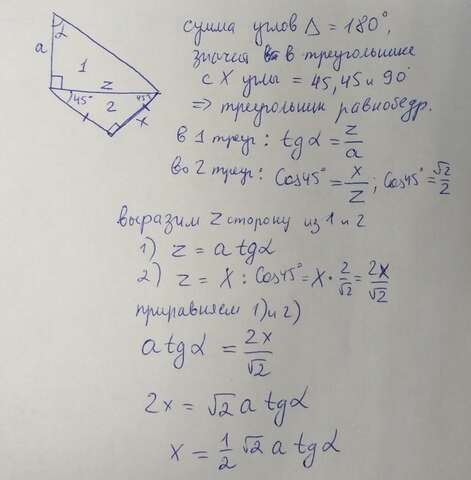 a
α
1
z
45°
2
45°
x
сумма углов △ = 180°,
значит в треугольнике
с X углы = 45, 45 и 90°
⇒ треугольник равнобедр.
в 1 треуг: tgα = z/a
во 2 треуг: Cos45° = x/z; Cos45° = √2/2
выразим z сторону из 1 и 2
1) z = a tgα
2) z = X : Cos45° = X · 2/√2 = 2x/√2
приравняем 1) и 2)
a tgα = 2x/√2
2x = √2 a tgα
x = 1/2 √2 a tgα